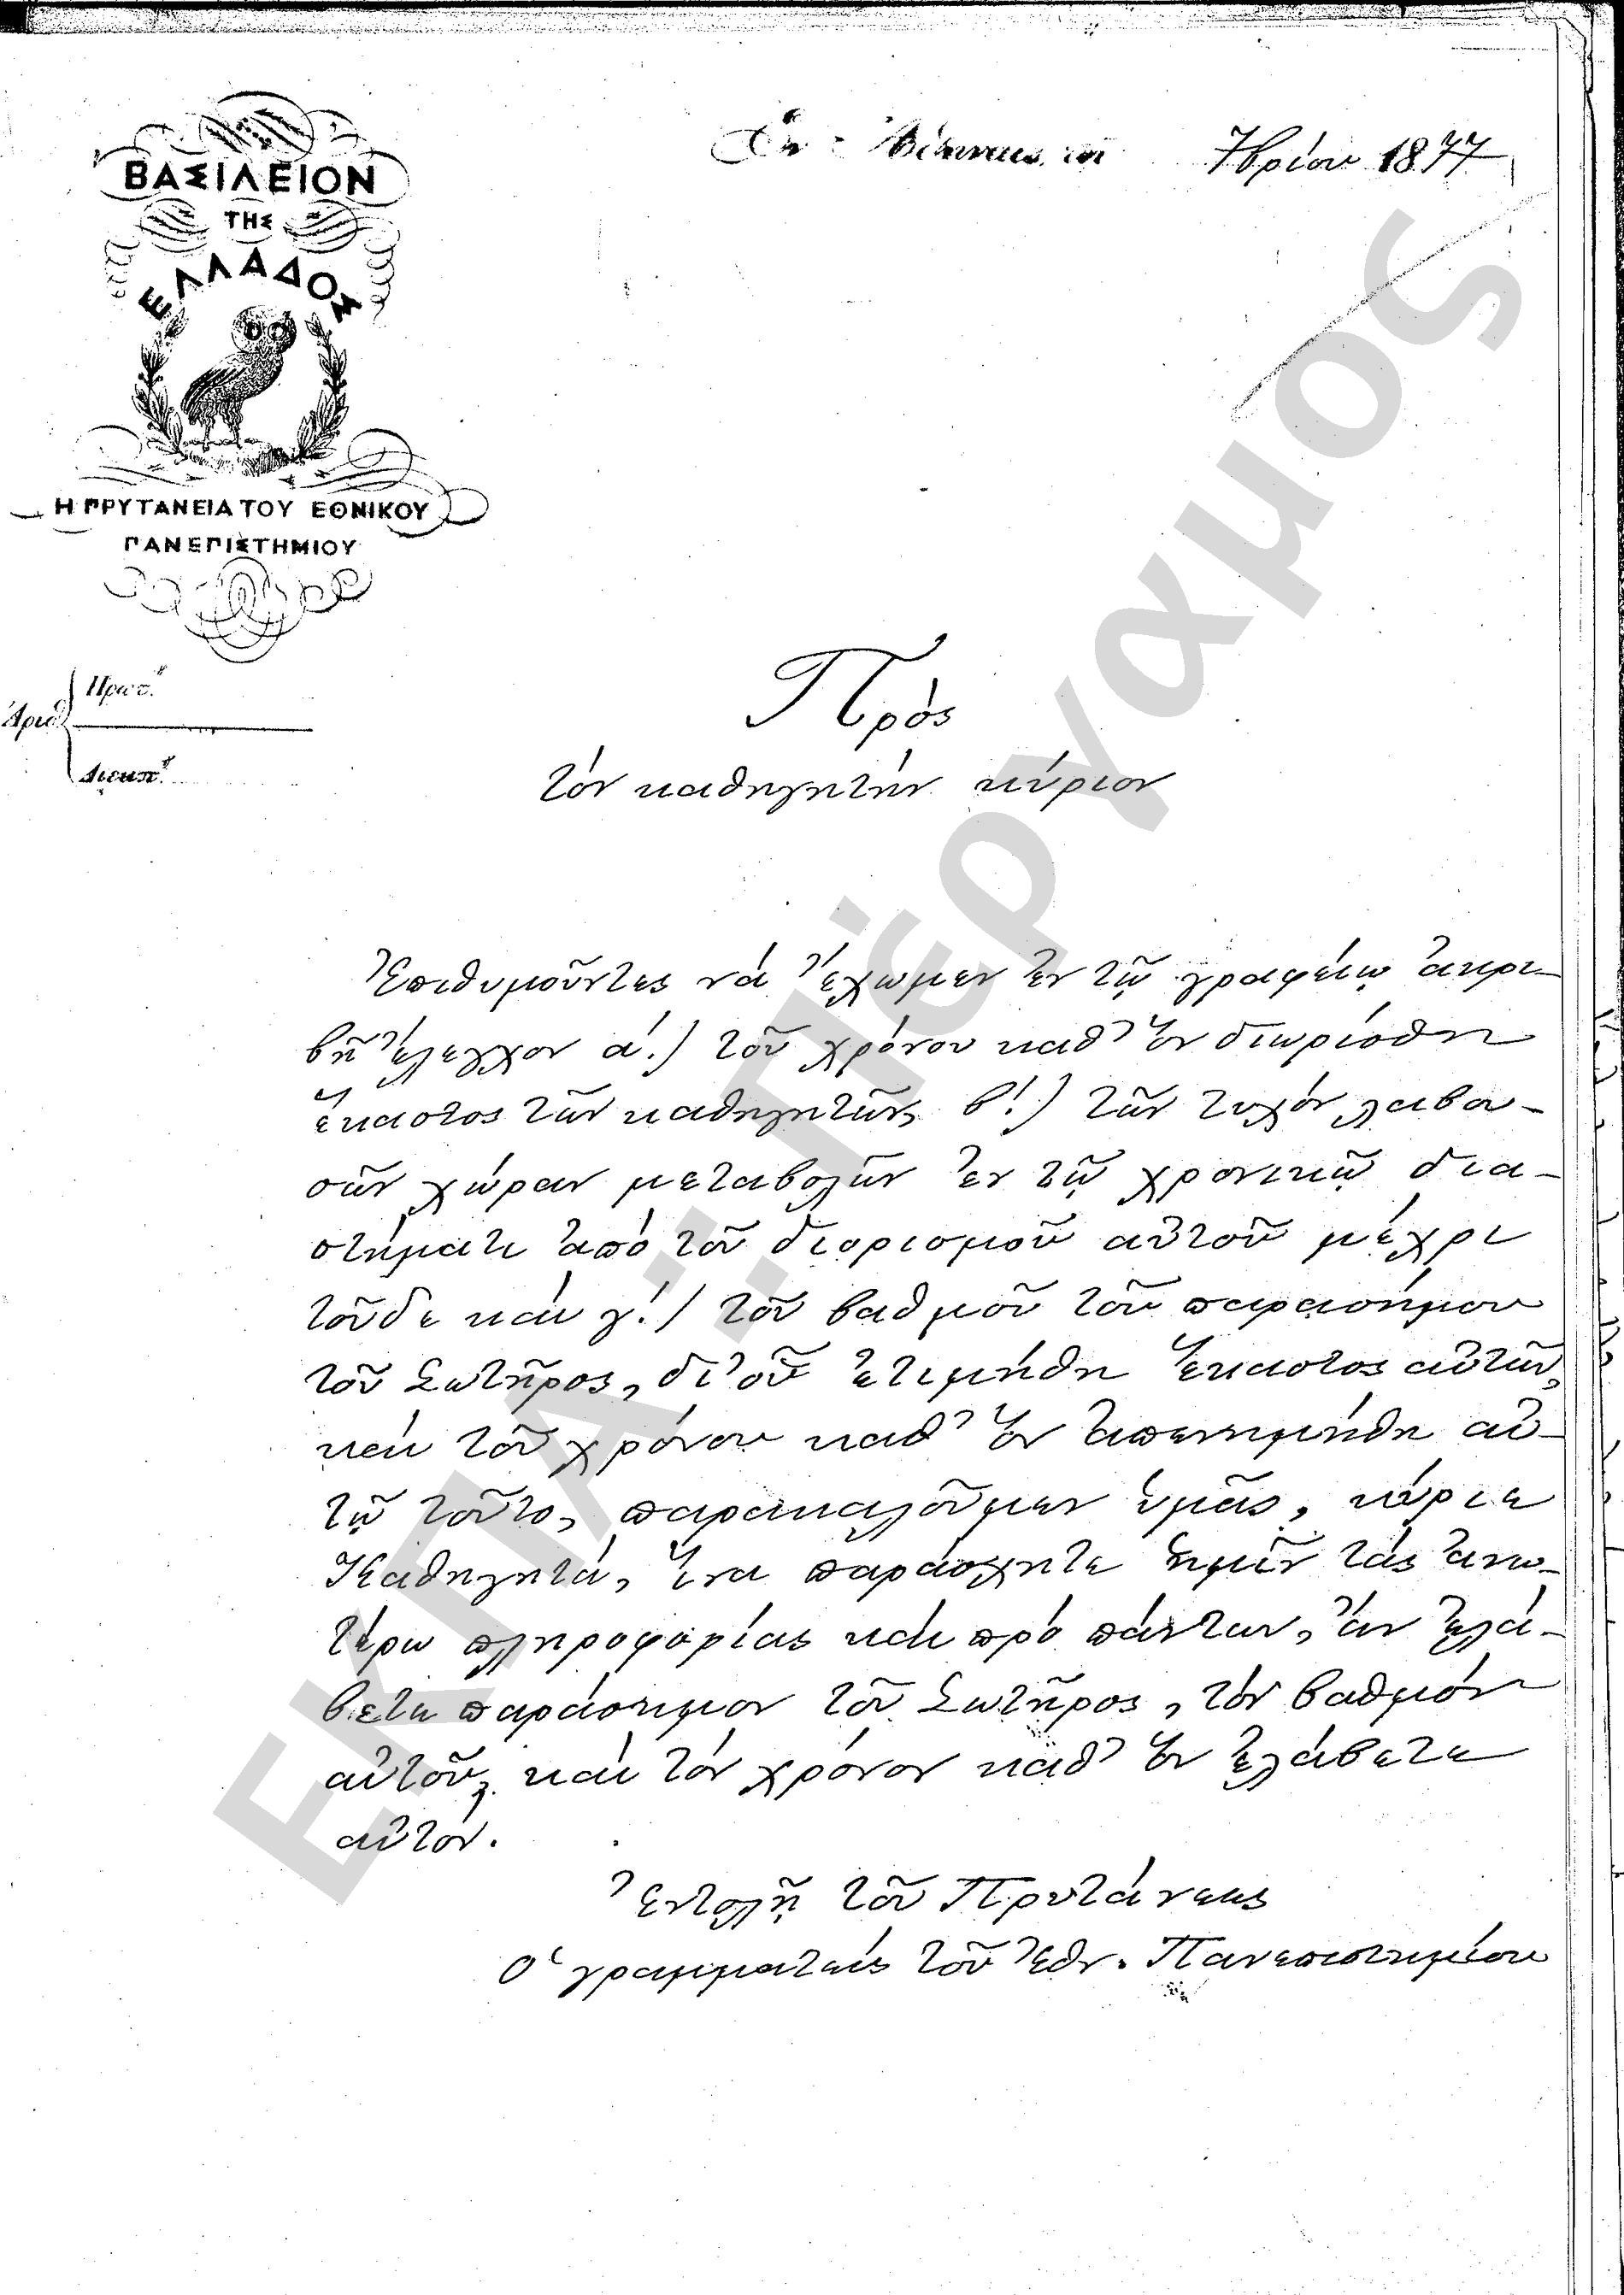 ΒΑΣΙΛΕΙΟΝ
ΤΗΣ
ΕΛΛΑΔΟΣ
Η ΠΡΥΤΑΝΕΙΑ ΤΟΥ ΕΘΝΙΚΟΥ
ΠΑΝΕΠΙΣΤΗΜΙΟΥ
Ἐν Ἀθήναις τῇ 7βρίου 1877
Ἀριθ. Πρωτ.
Διεκπ.
Πρὸς
τὸν καθηγητὴν κύριον
Ἐπιθυμοῦντες νὰ ἔχωμεν ἐν τῷ γραφείῳ ἀκρι-
βῆ ἔλεγχον α΄.) τοῦ χρόνου καθ' ὃν διωρίσθη
ἕκαστος τῶν καθηγητῶν, β΄.) τῶν τυχὸν λαβου-
σῶν χώραν μεταβολῶν ἐν τῷ χρονικῷ δια-
στήματι ἀπὸ τοῦ διορισμοῦ αὐτοῦ μέχρι
τοῦδε καὶ γ΄.) τοῦ βαθμοῦ τοῦ παρασήμου
τοῦ Σωτῆρος, δι' οὗ ἐτιμήθη ἕκαστος αὐτῶν,
καὶ τοῦ χρόνου καθ' ὃν ἀπενεμήθη αὐ-
τῷ τοῦτο, παρακαλοῦμεν ὑμᾶς, κύριε
Καθηγητά, ἵνα παράσχητε ἡμῖν τὰς ἀνω-
τέρω πληροφορίας καὶ πρὸ πάντων, ἂν ἐλά-
βετε παράσημον τοῦ Σωτῆρος, τὸν βαθμὸν
αὐτοῦ, καὶ τὸν χρόνον καθ' ὃν ἐλάβετε
αὐτόν.
Ἐντολῇ τοῦ Πρυτάνεως
Ὁ γραμματεὺς τοῦ Ἐθν. Πανεπιστημίου
ΕΚΠΑ: Πέργαμος